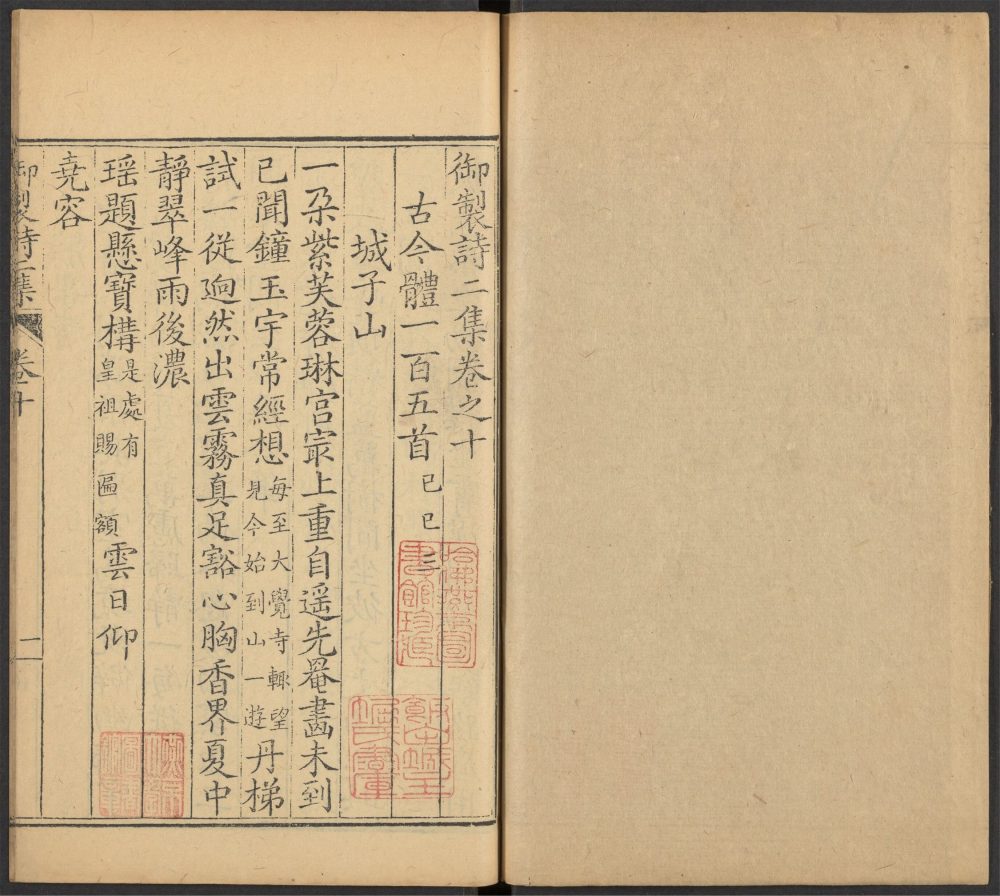 御製詩二集卷之十
古今體一百五首 己巳三
城子山
一朶紫芙蓉琳宫㝡上重自遥先罨畵未到
已聞鐘玉宇常經想每至大覺寺輒望見今始到山一遊丹梯
試一從逈然出雲霧真足豁心胸香界夏中
靜翠峰雨後濃
瑶題懸寶構是處有皇祖賜匾額雲日仰
堯容
御製詩二集 卷十 一
哈佛燕京
書館珍